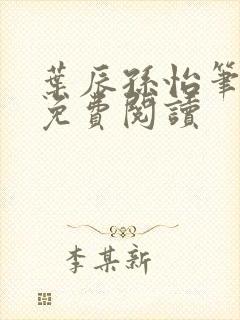 葉辰孫怡筆
免費閱讀
李某新